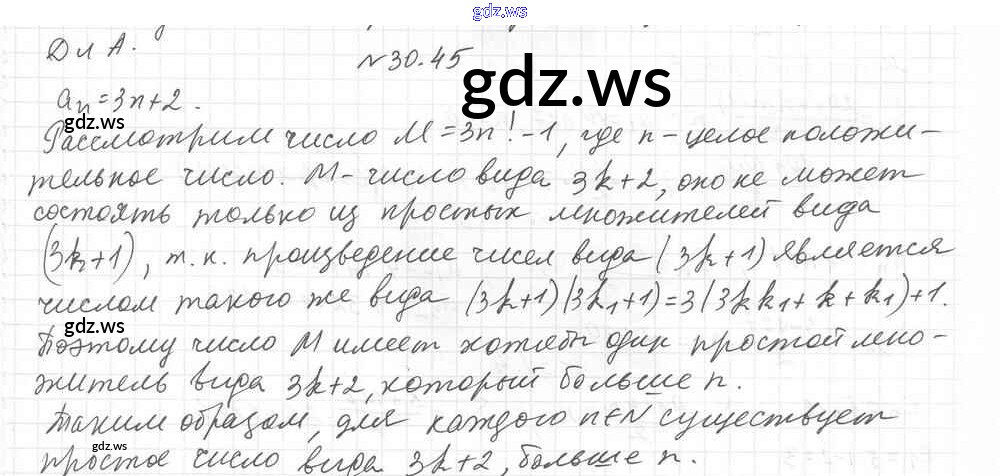 gdz.ws
Для А.
№30.45
gdz.ws
aₙ=3n+2.
gdz.ws
Рассмотрим число М=3n!-1, где n-целое положи-
тельное число. М-число вида 3k+2, оно не может
состоять только из простых множителей вида
(3k+1), т.к. произведение чисел вида (3k+1) является
числом такого же вида (3k+1)(3k₁+1)=3(3kk₁+k+k₁)+1.
gdz.ws
Поэтому число М имеет хотябы один простой мно-
житель вида 3k+2, который больше n.
Таким образом, для каждого n∈N существует
gdz.ws
простое число вида 3k+2, больше n.